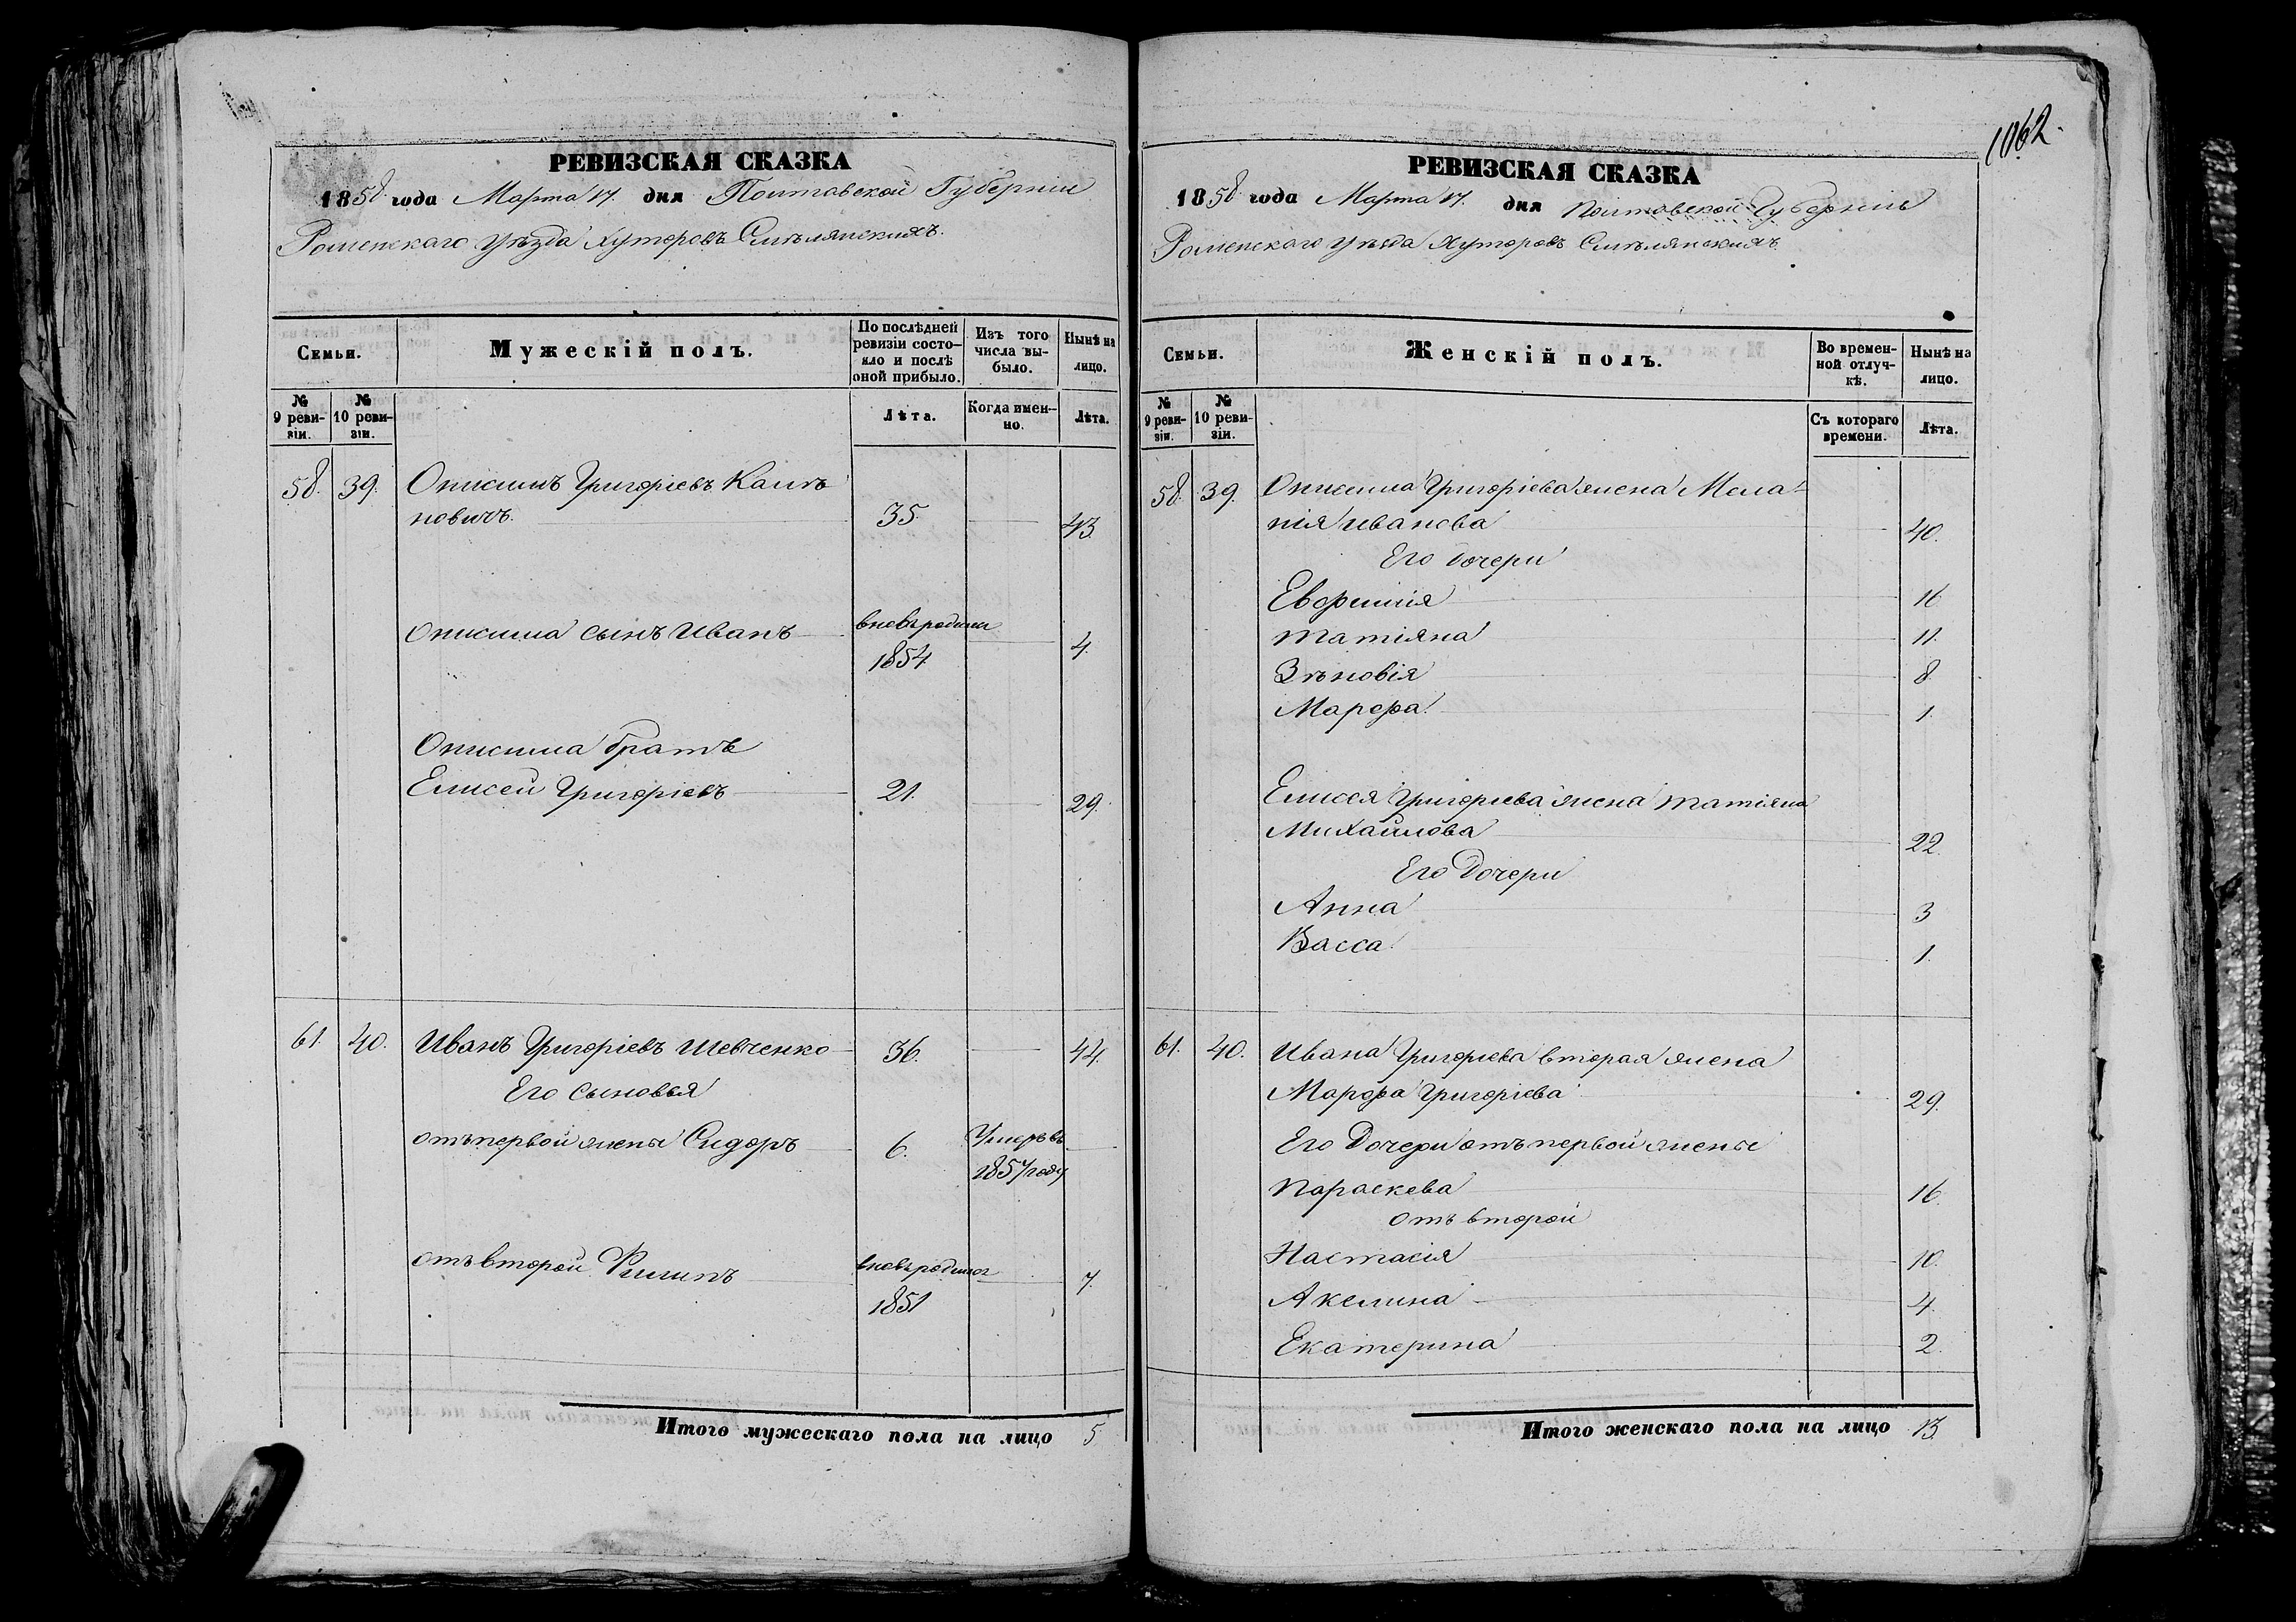 1062.
РЕВИЗСКАЯ СКАЗКА
1858 года Марта 17. дня Полтавской Губерніи
Роменскаго Уѣзда Хуторовъ Смѣлянскихъ.
Семьи.
Мужескій полъ.
По послѣдней ревизіи состояло и послѣ оной прибыло.
Изъ того числа выбыло.
Нынѣ на лицо.
№ 9 ревизіи.
№ 10 ревизіи.
Лѣта.
Когда именно.
Лѣта.
58. 39. Онисимъ Григоріевъ
новичъ. 35. 43.
Онисима сынъ Иванъ вновь родился
1854 4.
Онисима братъ
Елисей Григоріевъ 21. 29.
61. 40. Иванъ Григоріевъ Шевченко 36. 44.
Его сыновья
отъ первой жены Сидоръ 6. Умеръ въ
1857 году
отъ второй Филипъ вновь родился 7.
1851
Итого мужескаго пола на лицо 5
РЕВИЗСКАЯ СКАЗКА
1858 года Марта 17. дня Полтавской Губерніи
Роменскаго Уѣзда Хуторовъ Смѣлянскихъ.
Семьи.
Женскій полъ.
Во временной отлучкѣ.
Нынѣ на лицо.
№ 9 ревизіи.
№ 10 ревизіи.
Съ котораго времени.
Лѣта.
58. 39. Онисима Григоріева жена Мела-
нія Иванова 40.
Его дочери
Евфимія 16
Татіяна 11.
Зѣновія 8.
Марфа 1.
Елисея Григоріева жена Татіяна
Михайлова 22.
Его Дочери
Анна 3
Васса 1.
61. 40. Ивана Григоріева вторая жена
Марфа Григоріева 29.
Его Дочери отъ первой жены
Параскева 16.
отъ второй
Настасія 10.
Акелина 4.
Екатерина 2.
Итого женскаго пола на лицо 13.